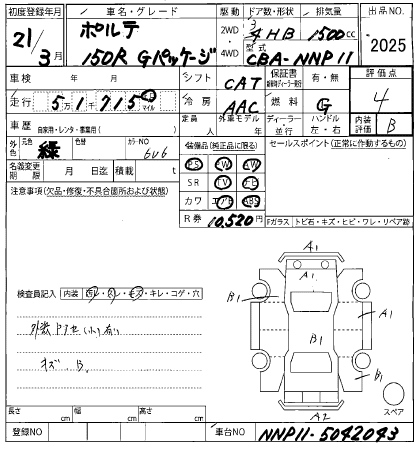 初度登録年月 車名・グレード 駆動 ドア数・形状 排気量 出品NO.
21/3月 ポルテ 2WD 4WD 3/4HB 1500cc 2025
150R Gパッケージ 型式 CBA-NNP11
車検 年 月 シフト CAT 保証書 有・無 評価点
走行 51千715 km マイル 冷房 AAC 燃料 G 4
車歴 自家用・レンタ・事業用( ) 定員 人 外車モデル 年 ディーラー・並行 ハンドル 左・右 内装評価 B
外色 元色 緑 色替 カラーNO 6U6 装備品(純正品に限る) セールスポイント(正常に作動するもの)
PS CW AW
名義変更期限 月 日迄 積載 t SR TV ナビ
注意事項(欠品・修復・不具合箇所および状態) カワ エアB ABS
R券 10,520円 Fガラス トビ石・キズ・ヒビ・ワレ・リペア跡
A1
A1
検査員記入 内装 汚レ・スレ・キズ・キレ・コゲ・穴 B1
A1
外装
キズ B. B1
B1
長さ cm 幅 cm 高さ cm A2 スペア
登録NO 車台NO NNP11-5042043